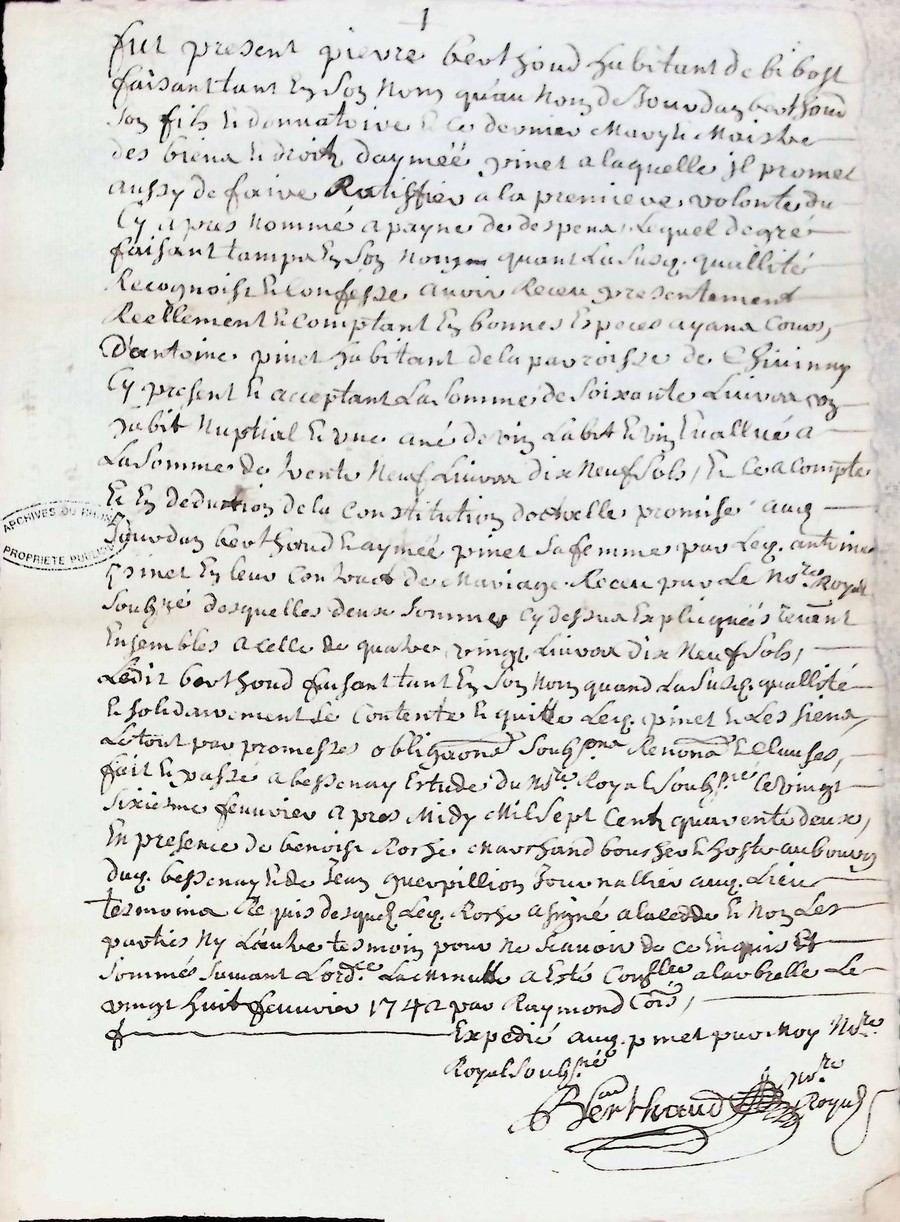 1
fut present pierre berthoud habitant de bibost
faisant tant En son Nom qu'au Nom de Jourdan berthoud
son fils Et donnatoire Et ce dernier Mary Et Maistre
des biens Et droits d'aymée pinet a laquelle jl promet
aussy de faire Ratiffier a la premiere volonte du
Cy apres nommé a payne de despens, Lequel de gré
faisant tamps En son nom quant La Susq. quallité
Recognoist Et Confesse avoir Receu presentement
Reellement Et Comptant En bonnes Especes ayans Cours,
D'antoine pinet habitant de la parroisse de Chivinny
Cy present Et acceptant La Somme de Soixante Livres un
habit Nuptial Et une ané de vin L'abit Et vin Evallué a
La Somme de trente Neuf Livres dix Neuf Sols, Et Ce a Compte
Et En deduction de la Constitution dotrelle promise aux
Jourdan berthoud Et aymée pinet Sa femme par Leq. antoine
pinet En leur Contract de Mariage Receu par Le Nore Royal
Soubzné desquelles deux Sommes Cy dessus Expliquées revent
Ensembles a celle de quatre vingt Livres dix Neuf Sols,
Ledit berthoud faisant tant En Son Nom quand La Susq. quallité
Et Solidairement Se Contente Et quitte Leq. pinet Et Les Siens,
Le tout par promesses obligaons Soubzons Renonons Et Clauses,
fait Et passé a bessenay Estude du Nore Royal Soubsné Le vingt
Sixiesme feuvrier apres Midy Mil Sept Cents quarente deux,
En presence de benoist Roche Marchand boucher Et hoste au bourg
duq. bessenay Et de Jean guerpillion Journallier auq. Lieu
tesmoins Requis desquels Leq. Roche a signé a la cedde Et Non Les
parties Ny L'autre tesmoin pour ne Scavoir de ce Enquis Et
Sommés Suivant L'ordce La minutte a Esté Conllée a larbrelle Le
vingt huit feuvrier 1742 par Raymond Cois,
Expedié auq. pinet par Moy Nore
Royal Soubsné
Berthaud nore
Royal
ARCHIVES DU RHÔNE
PROPRIÉTÉ PUBLIQUE